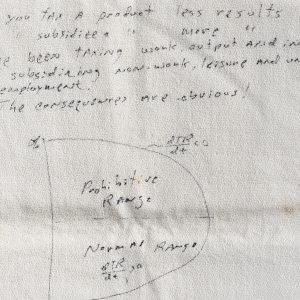 you tax a product less results
subsidize a " more "
e been taxing work, output and in
subsidizing non-work, leisure and un
employment.
The consequences are obvious!
dTR/dt <0
Prohibitive
Range
Normal Range
dTR/dt >0